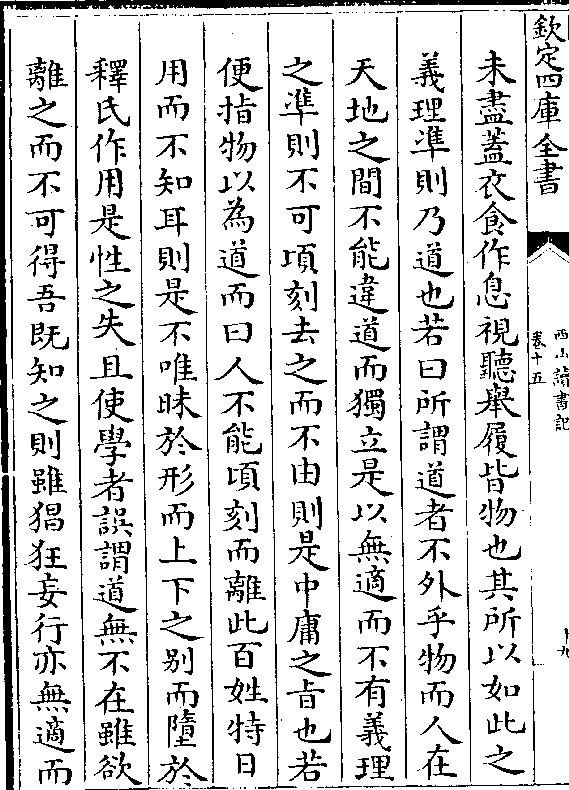 欽定四庫全書
西山讀書記
卷十五
十九
未盡蓋衣食作息視聽舉履皆物也其所以如此之
義理準則乃道也若曰所謂道者不外乎物而人在
天地之間不能違道而獨立是以無適而不有義理
之準則不可頃刻去之而不由則是中庸之旨也若
便指物以為道而曰人不能頃刻而離此百姓特日
用而不知耳則是不唯昧於形而上下之别而墮於
釋氏作用是性之失且使學者誤謂道無不在雖欲
離之而不可得吾既知之則雖猖狂妄行亦無適而